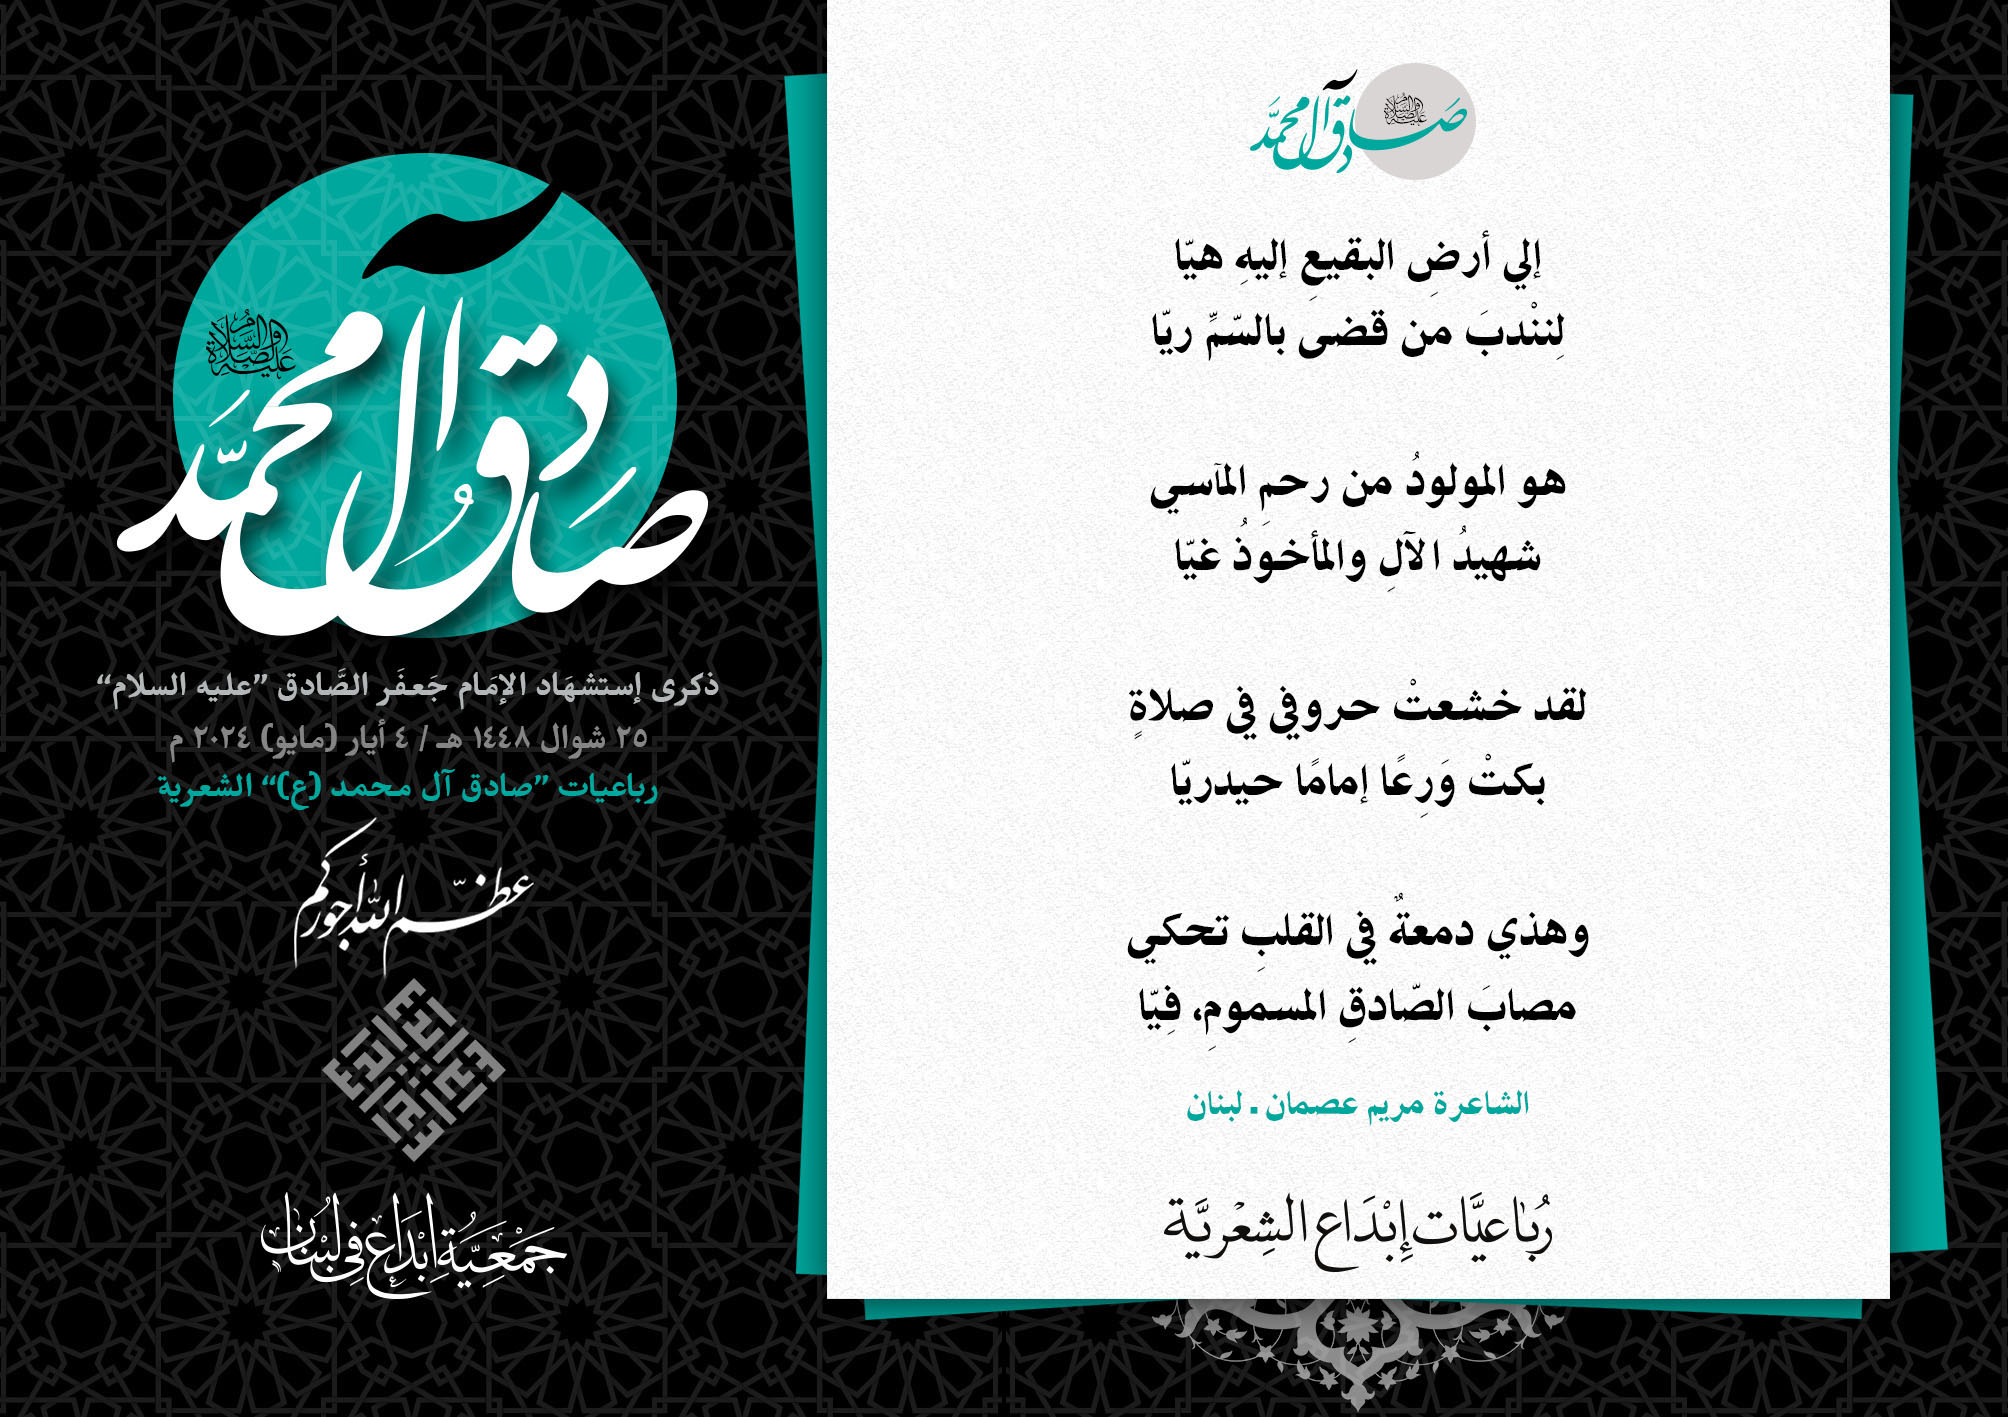 صادق آل محمد
عليه الصلاة والسلام
ذكرى إستشهَاد الإمَام جَعفَر الصَّادق ”عليه السلام“
٢٥ شوال ١٤٤٨ هـ / ٤ أيار (مايو) ٢٠٢٤ م
رباعيات ”صادق آل محمد (ع)“ الشعرية
عظّم الله أجوركم
إبداع
جَمْعِيَّة إِبْدَاع فِي لُبْنَان
صادق آل محمد
عليه الصلاة والسلام
إلي أرضِ البقيعِ إليهِ هيّا
لِننْدبَ من قضى بالسّمِّ ريّا
هو المولودُ من رحمِ المآسي
شهيدُ الآلِ والمأخوَذُ غيّا
لقد خشعتْ حروفي في صلاةٍ
بكتْ وَرِعًا إمامًا حيدريّا
وهذي دمعةٌ في القلبِ تحكي
مصابَ الصّادقِ المسمومِ، فِيّا
الشاعرة مريم عصمان . لبنان
رُبَاعيَّات إِبْدَاع الشِعْريَّة